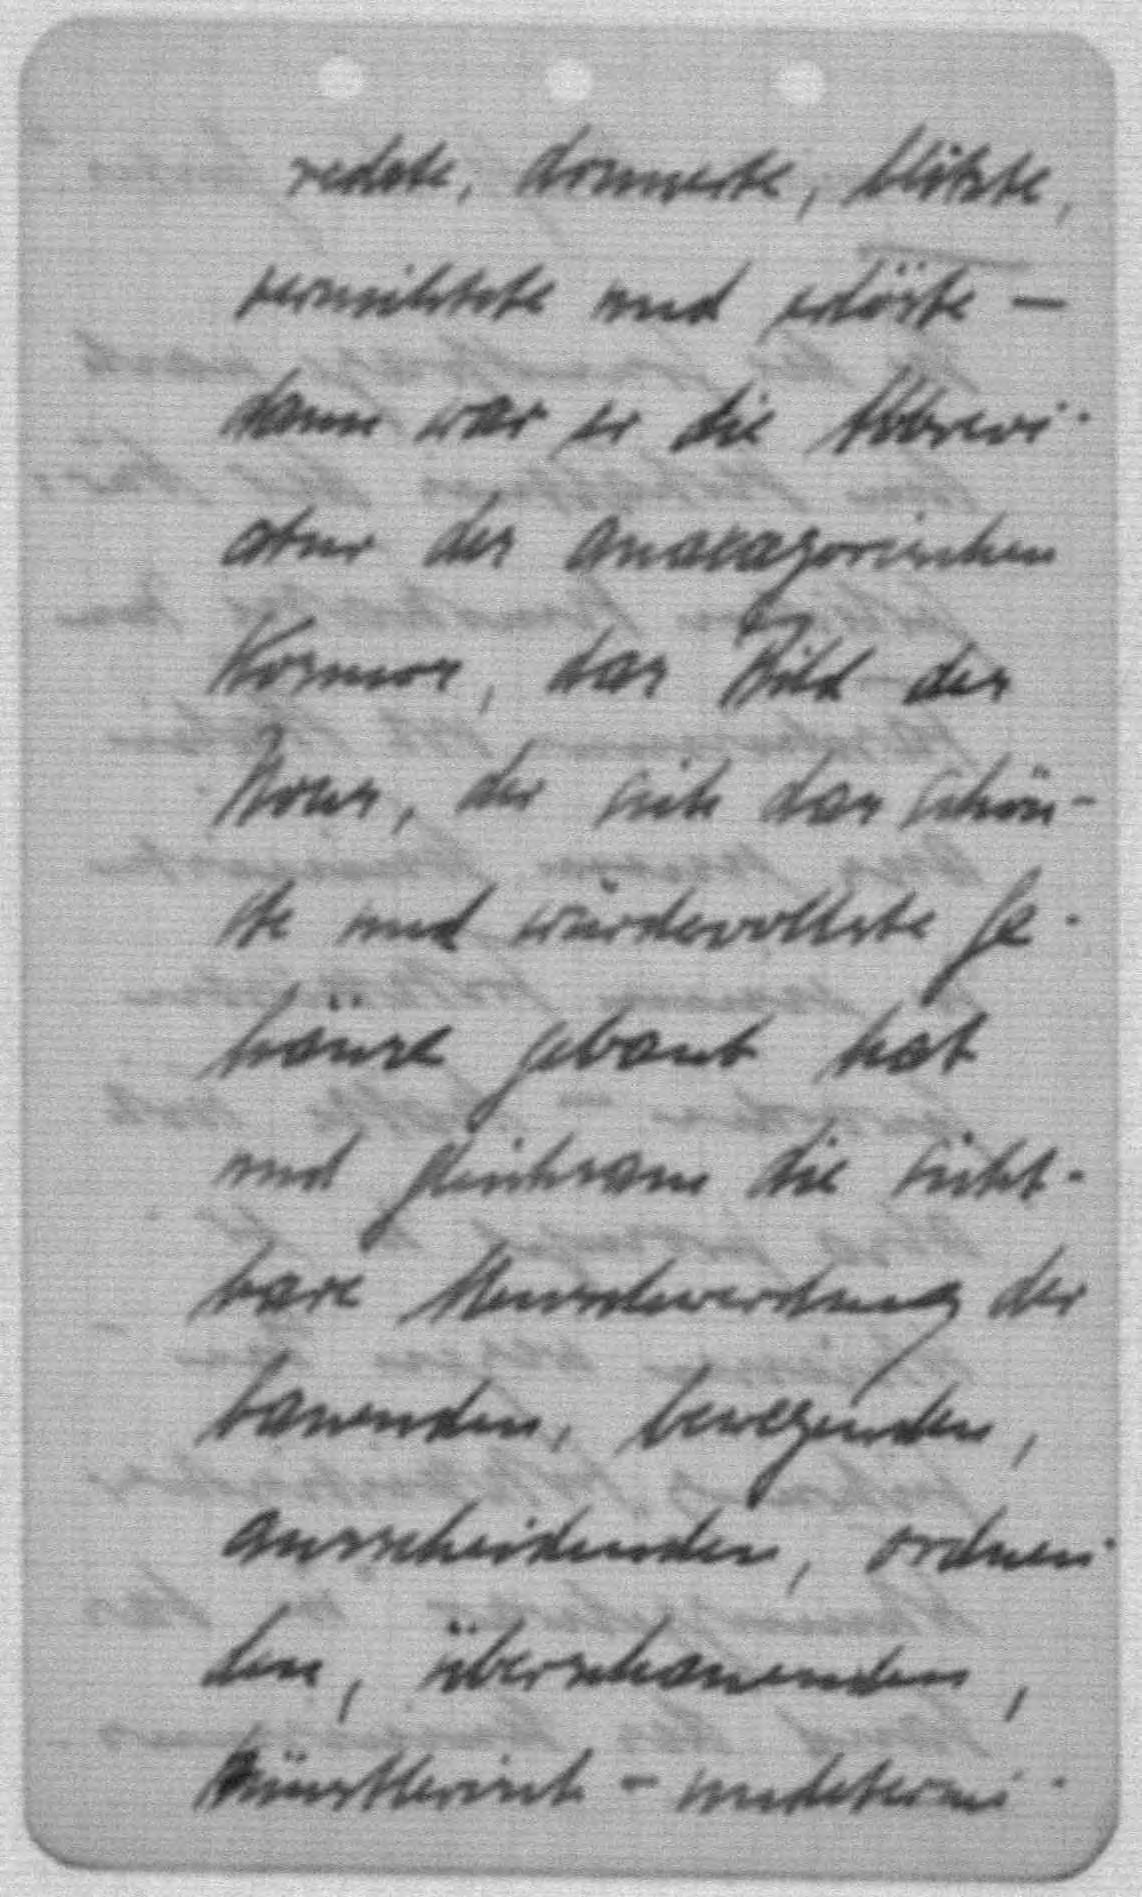 redete, donnerte, blitzte,
vernichtete und erlöste —
dann war er die Abbrevi-
atur des anaxagorischen
Kosmos, das Bild des
Nous, der sich das schön-
ste und würdevollste Ge-
häuse gebaut hat
und gleichsam die sicht-
bare Menschwerdung der
bauenden, bewegenden,
ausscheidenden, ordnen-
den, überschauenden,
künstlerisch - undetermi-